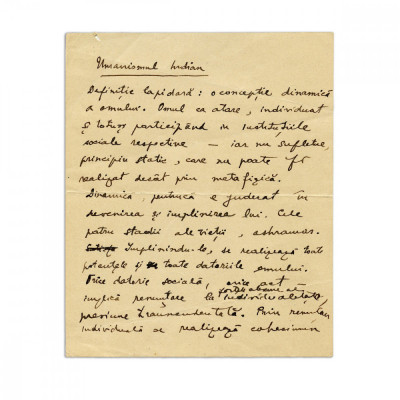 Umanismul Indian
Definiție lapidară: o concepție dinamică
a omului. Omul ca atare, individuat
și totuși participând în instituțiile
sociale respective — iar nu sufletul,
principiu static, care nu poate fi
realizat decât prin metafizică.
Dinamică, pentrucă e judecat în
devenirea și împlinirea lui. Cele
patru stadii ale vieții, ashramas.
Împlinindu-le, se realizează toate
potențele și toate datoriile omului.
Orice datorie socială, orice act
implică renunțare la individualitate,
presiune transcendentală. Prin renunțare
individuală se realizează coheziunea